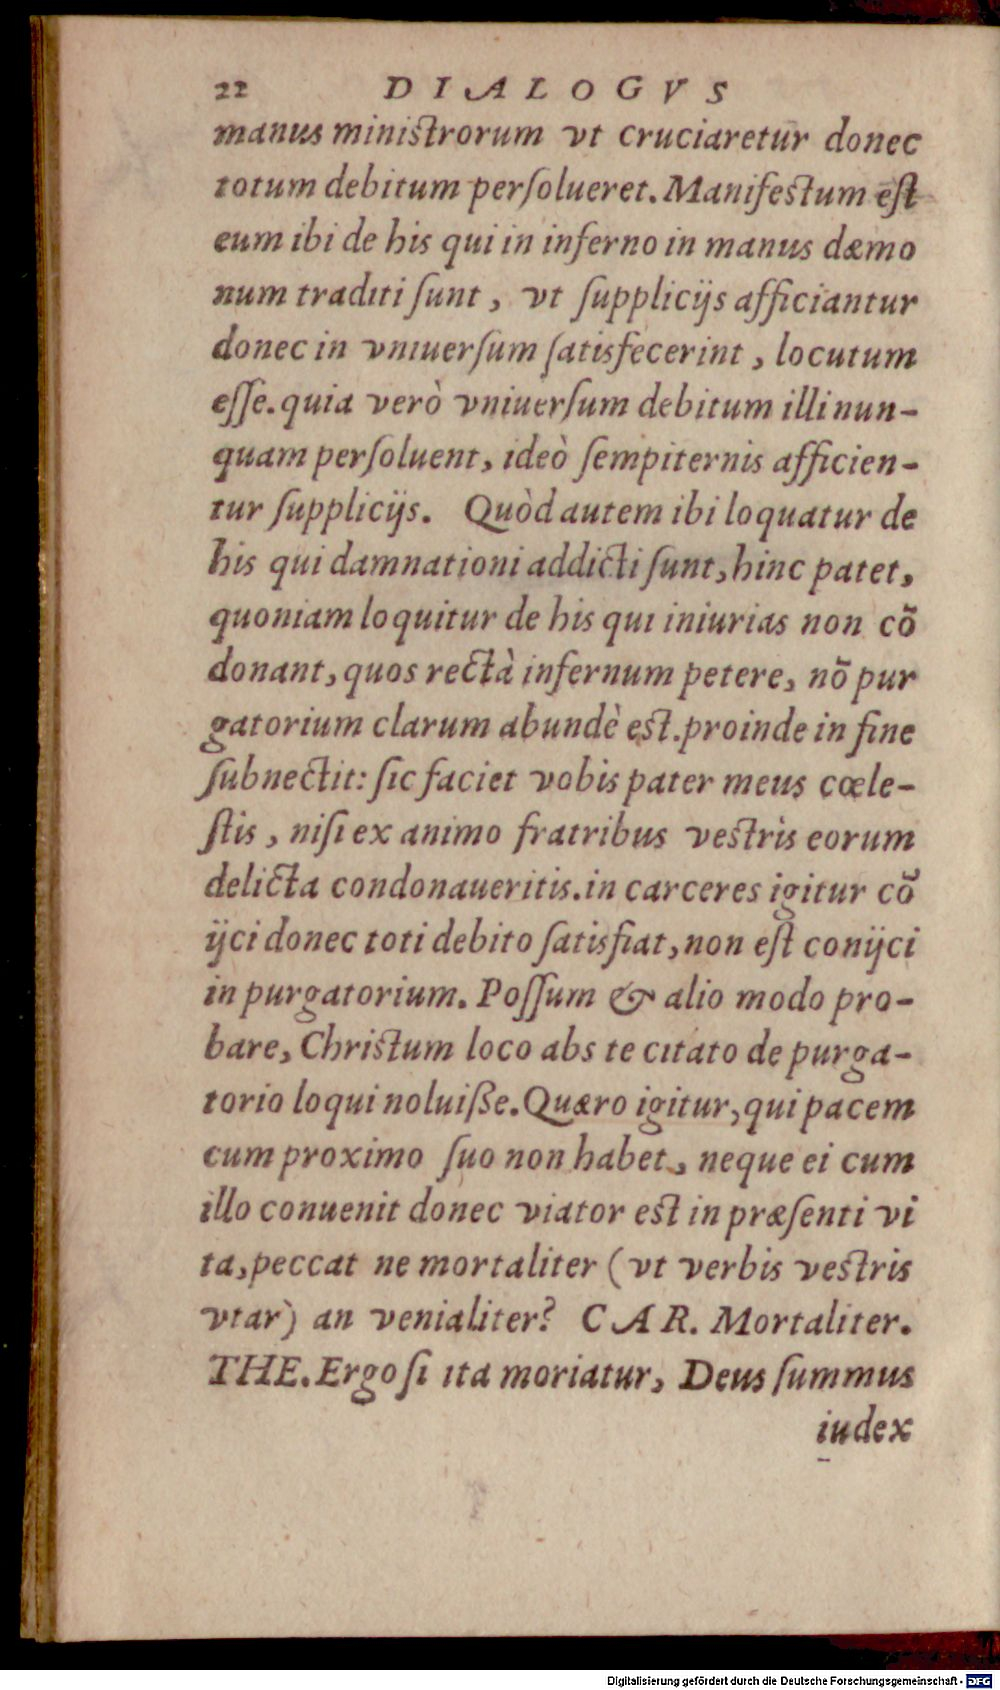 22 DIALOGVS
manus ministrorum vt cruciaretur donec
totum debitum perſolueret. Manifestum eſt
eum ibi de his qui in inferno in manus dæmo
num traditi ſunt, vt ſupplicijs afficiantur
donec in vniuerſum ſatisfecerint, locutum
eſſe. quia verò vniuerſum debitum illi nun-
quam perſoluent, ideò ſempiternis afficien-
tur ſupplicijs. Quòd autem ibi loquatur de
his qui damnationi addicti ſunt, hinc patet,
quoniam loquitur de his qui iniurias non cõ
donant, quos rectà infernum petere, nõ pur
gatorium clarum abundè est. proinde in fine
ſubnectit: ſic faciet vobis pater meus cœle-
ſtis, niſi ex animo fratribus vestris eorum
delicta condonaueritis. in carceres igitur cõ
ijci donec toti debito ſatisfiat, non eſt conijci
in purgatorium. Poſſum & alio modo pro-
bare, Christum loco abs te citato de purga-
torio loqui noluiße. Quæro igitur, qui pacem
cum proximo ſuo non habet, neque ei cum
illo conuenit donec viator est in præſenti vi
ta, peccat ne mortaliter (vt verbis vestris
vtar) an venialiter? CAR. Mortaliter.
THE. Ergo ſi ita moriatur, Deus ſummus
iudex
Digitalisierung gefördert durch die Deutsche Forschungsgemeinschaft - DFG